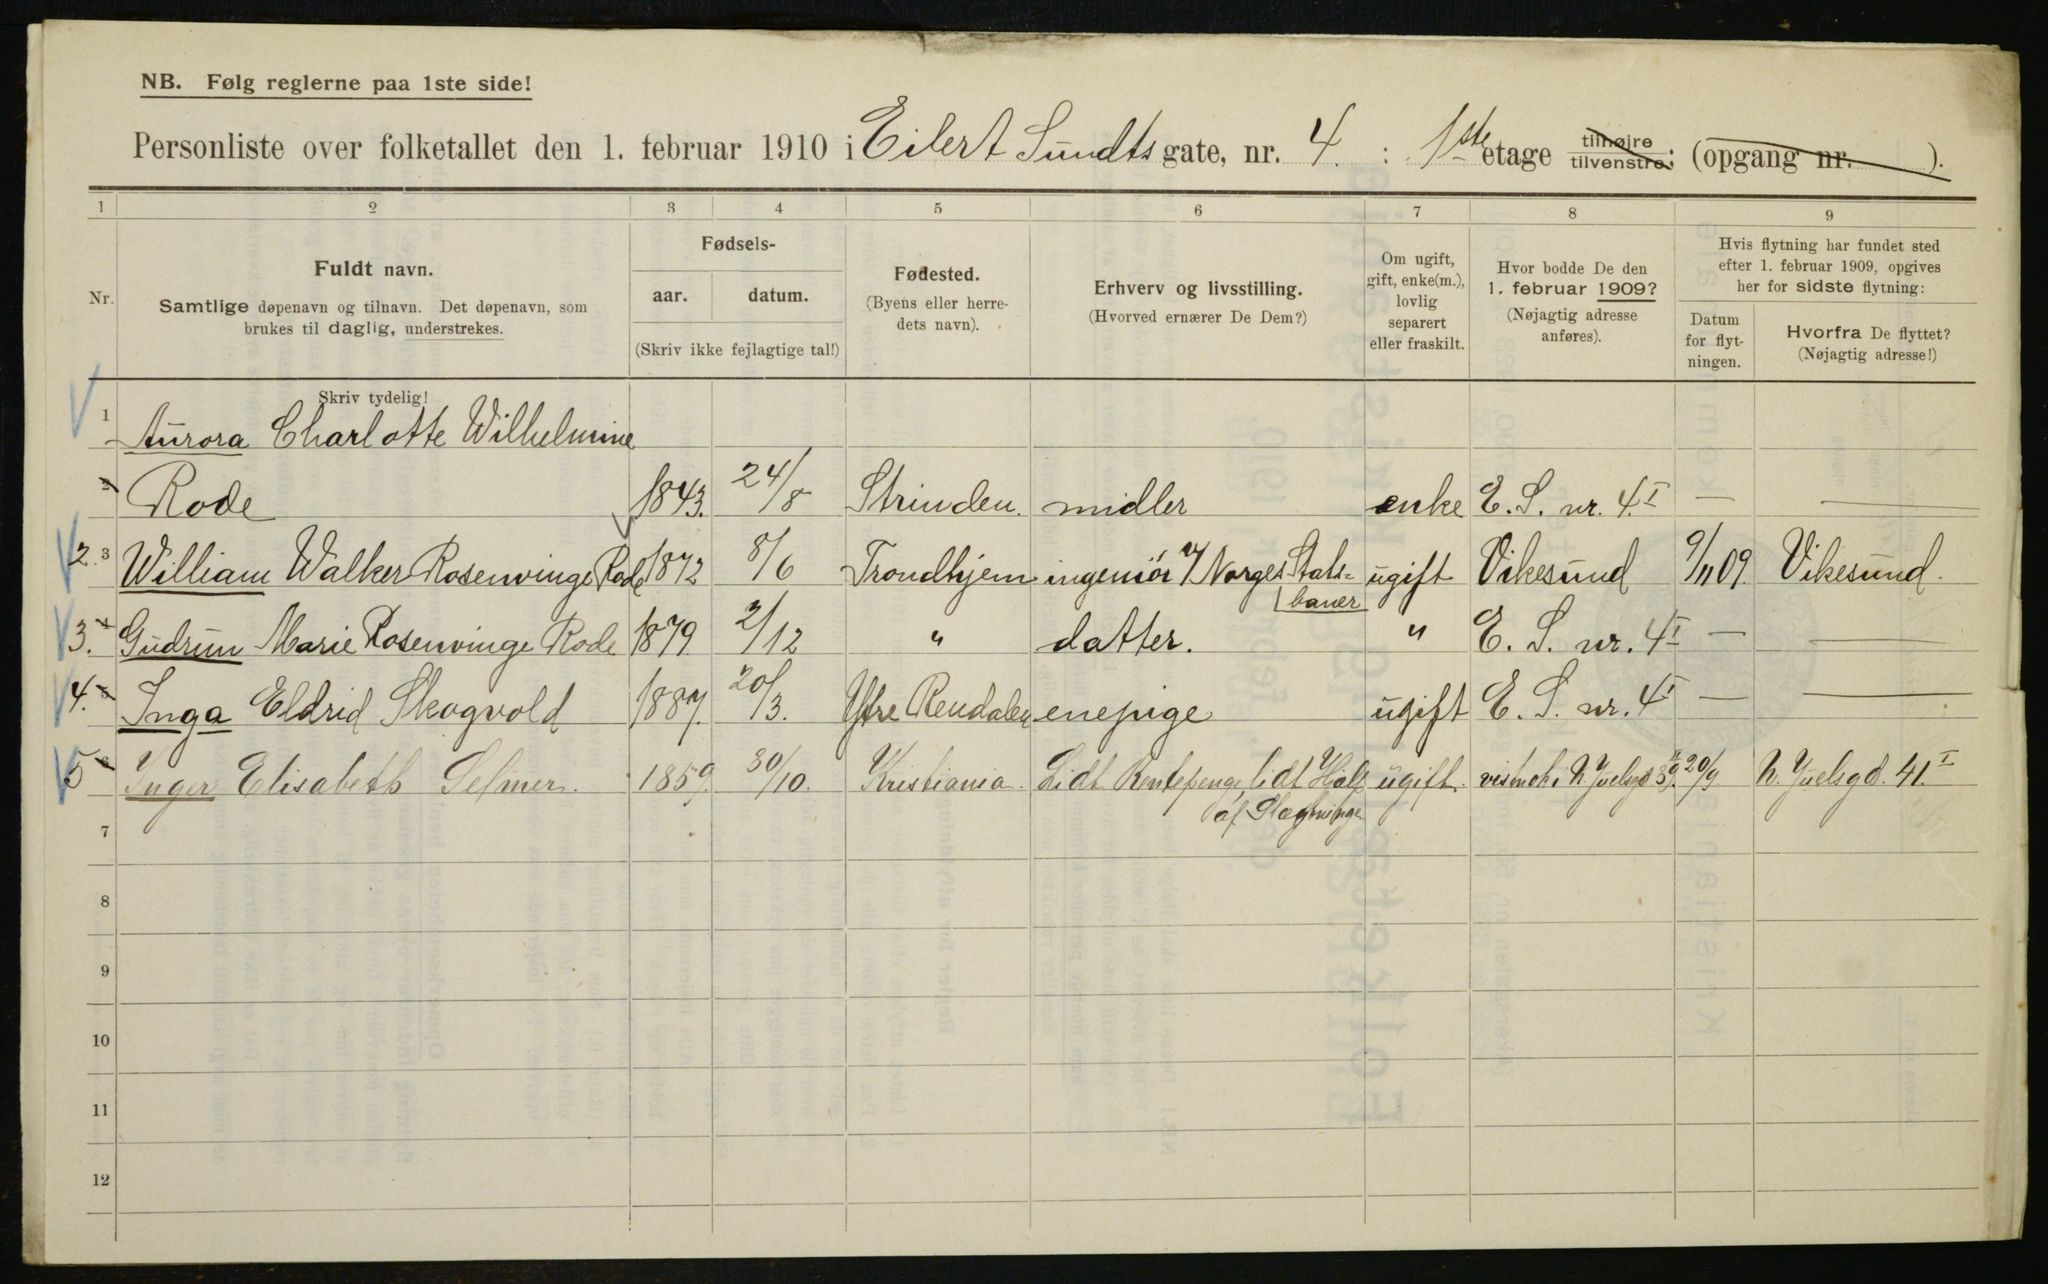 NB. Følg reglerne paa 1ste side!
Personliste over folketallet den 1. februar 1910 i Eilert Sundts gate, nr. 4. : 1ste etage tilhøjre tilvenstre; (opgang nr. ).
1 2 3 4 5 6 7 8 9
Nr.
Fuldt navn.
Samtlige døpenavn og tilnavn. Det døpenavn, som
brukes til daglig, understrekes.
Fødsels-
aar. datum.
(Skriv ikke fejlagtige tal!)
Fødested.
(Byens eller herre-
dets navn).
Erhverv og livsstilling.
(Hvorved ernærer De Dem?)
Om ugift,
gift, enke(m.),
lovlig
separert
eller fraskilt.
Hvor bodde De den
1. februar 1909?
(Nøjagtig adresse
anføres).
Hvis flytning har fundet sted
efter 1. februar 1909, opgives
her for sidste flytning:
Datum
for flyt-
ningen.
Hvorfra De flyttet?
(Nøjagtig adresse!)
Skriv tydelig!
1 Aurora Charlotte Wilhelmine
2 Rode 1843. 24/8 Strinden. midler enke E. S. nr. 4.I — —
2. 3 William Walker Rosenvinge Rode 1872 8/6 Trondhjem ingeniør v/ Norges Stats= ugift Vikesund 9/11 09. Vikesund.
baner
3. 4 Gudrun Marie Rosenvinge Rode 1879 2/12 " datter. " E. S. nr. 4I — —
4. 5 Inga Eldrid Skogvold 1887. 20/3. Ytre Rendalen enepige ugift E. S. nr. 4I — —
5 6 Inger Elisabeth Selmer. 1859. 30/10. Kristiania. Lidt Rentepenge, lidt Hjælp ugift. N. Juelsgd 20/9 N. Juelsgd. 41.I
af Slægtninge
7
8
9
10
11
12